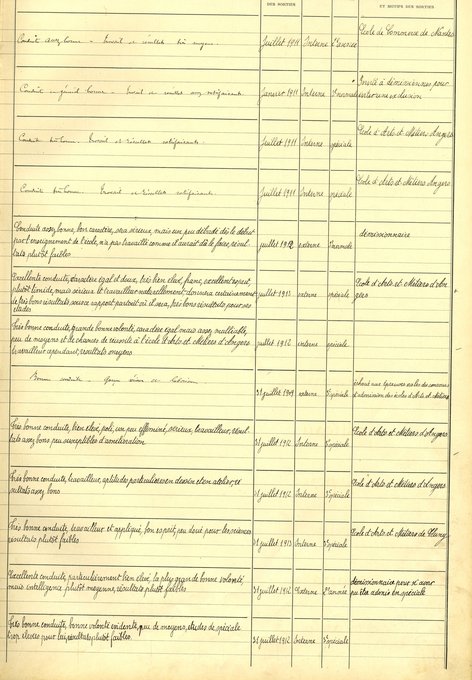 DES SORTIES
ET MOTIFS DES SORTIES
Conduite assez bonne - Travail et résultats très moyens. Juillet 1911 Interne 2e année École de Commerce de Nantes
Conduite en général bonne - Travail et résultats assez satisfaisants. Janvier 1911 Interne normale Invité à démissionner, pour
Conduite très bonne. Travail et résultats satisfaisants. Juillet 1911 Interne spéciale École d'Arts et Métiers Angers
Conduite très bonne. Travail et résultats satisfaisants Juillet 1911 Interne spéciale École d'Arts et Métiers Angers
Conduite assez bonne, bon caractère, assez sérieux, mais un peu dérouté dès le début
par l'enseignement de l'école, n'a pas travaillé comme il aurait dû le faire, résul-
tats plutôt faibles juillet 1912 externe démissionnaire
Excellente conduite, caractère égal et doux, très bien élevé, franc, excellent esprit,
plutôt timide, mais sérieux et travailleur naturellement, donnera certainement
de très bons résultats sous ce rapport partout où il sera, très bons résultats pour ses
études juillet 1912 externe spéciale École d'Arts et Métiers d'An-
gers
Très bonne conduite, grande bonne volonté, caractère égal mais assez malléable,
peu de moyens et de chances de réussite à l'école d'Arts et Métiers d'Angers
travailleur cependant, résultats moyens juillet 1912 interne spéciale
Bonne conduite - 31 juillet 1909 externe Spéciale échoué aux épreuves orales du concours
d'admission des écoles d'Arts et Métiers
Très bonne conduite, bien élevé, poli, un peu efféminé, sérieux, travailleur, résul-
tats assez bons peu susceptibles d'amélioration 31 juillet 1912 Interne Spéciale École d'Arts et Métiers d'Angers
Très bonne conduite, travailleur, aptitudes particulières en dessin et en atelier, ré-
sultats assez bons 31 juillet 1912 Interne Spéciale École d'Arts et Métiers d'Angers
Très bonne conduite, travailleur et appliqué, bon esprit, peu doué pour les sciences
résultats plutôt faibles 31 juillet 1913 Interne Spéciale École d'Arts et Métiers de Cluny
Excellente conduite, particulièrement bien élevé, la plus grande bonne volonté
mais intelligence plutôt moyenne, résultats plutôt faibles 31 juillet 1912 Externe 2e année démissionnaire pour n'avoir
pu être admis en spéciale
Très bonne conduite, bonne volonté évidente, peu de moyens, études de spéciale
trop élevées pour lui, résultats plutôt faibles. 31 juillet 1912 Interne Spéciale